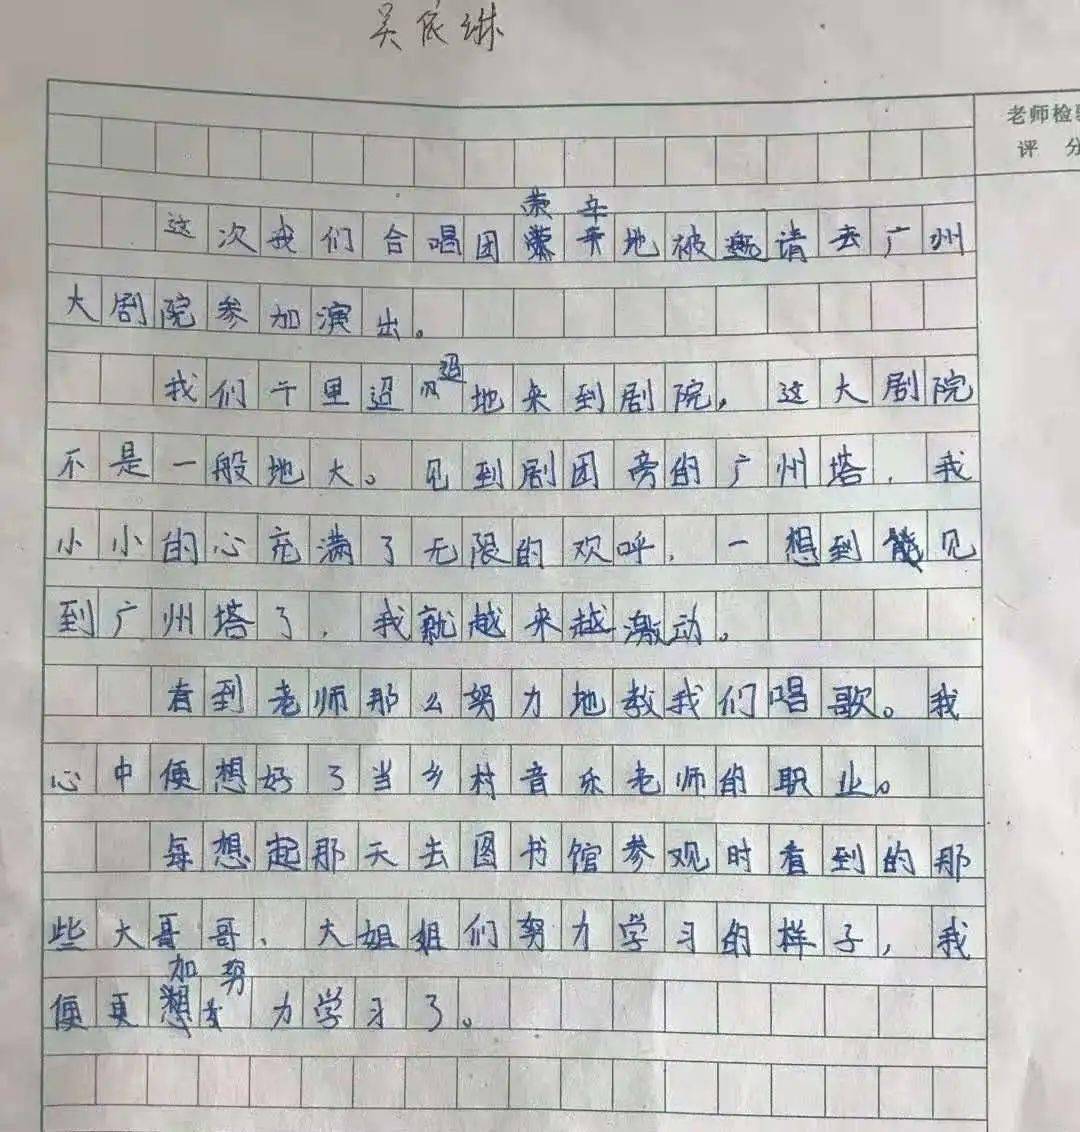 吴依琳
老师检
评 分
这次我们合唱团荣幸地被邀请去广州
大剧院参加演出。
我们千里迢迢地来到剧院，这大剧院
不是一般地大。见到剧团旁的广州塔，我
小小的心充满了无限的欢呼，一想到能见
到广州塔了，我就越来越激动。
看到老师那么努力地教我们唱歌。我
心中便想好了当乡村音乐老师的职业。
每想起那天去图书馆参观时看到的那
些大哥哥、大姐姐们努力学习的样子，我
便更加努力学习了。